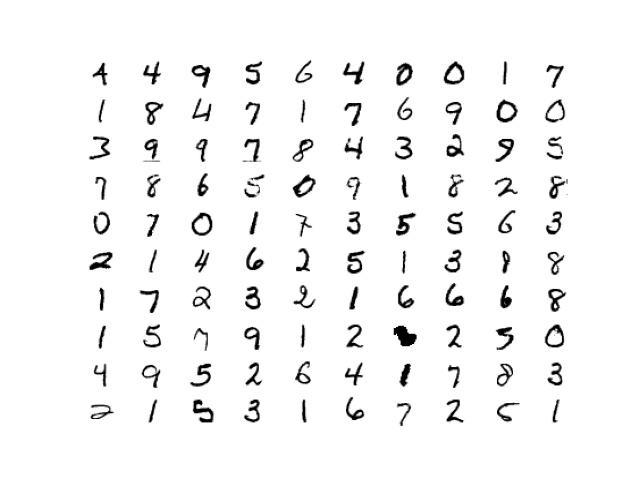 4 4 9 5 6 4 0 0 1 7
1 8 4 7 1 7 6 9 0 0
3 9 9 7 8 4 3 2 9 5
7 8 6 5 0 9 1 8 2 8
0 7 0 1 7 3 5 5 6 3
2 1 4 6 2 5 1 3 8 8
1 7 2 3 2 1 6 6 6 8
1 5 7 9 1 2 2 5 0
4 9 5 2 6 4 1 7 8 3
2 1 5 3 1 6 7 2 5 1